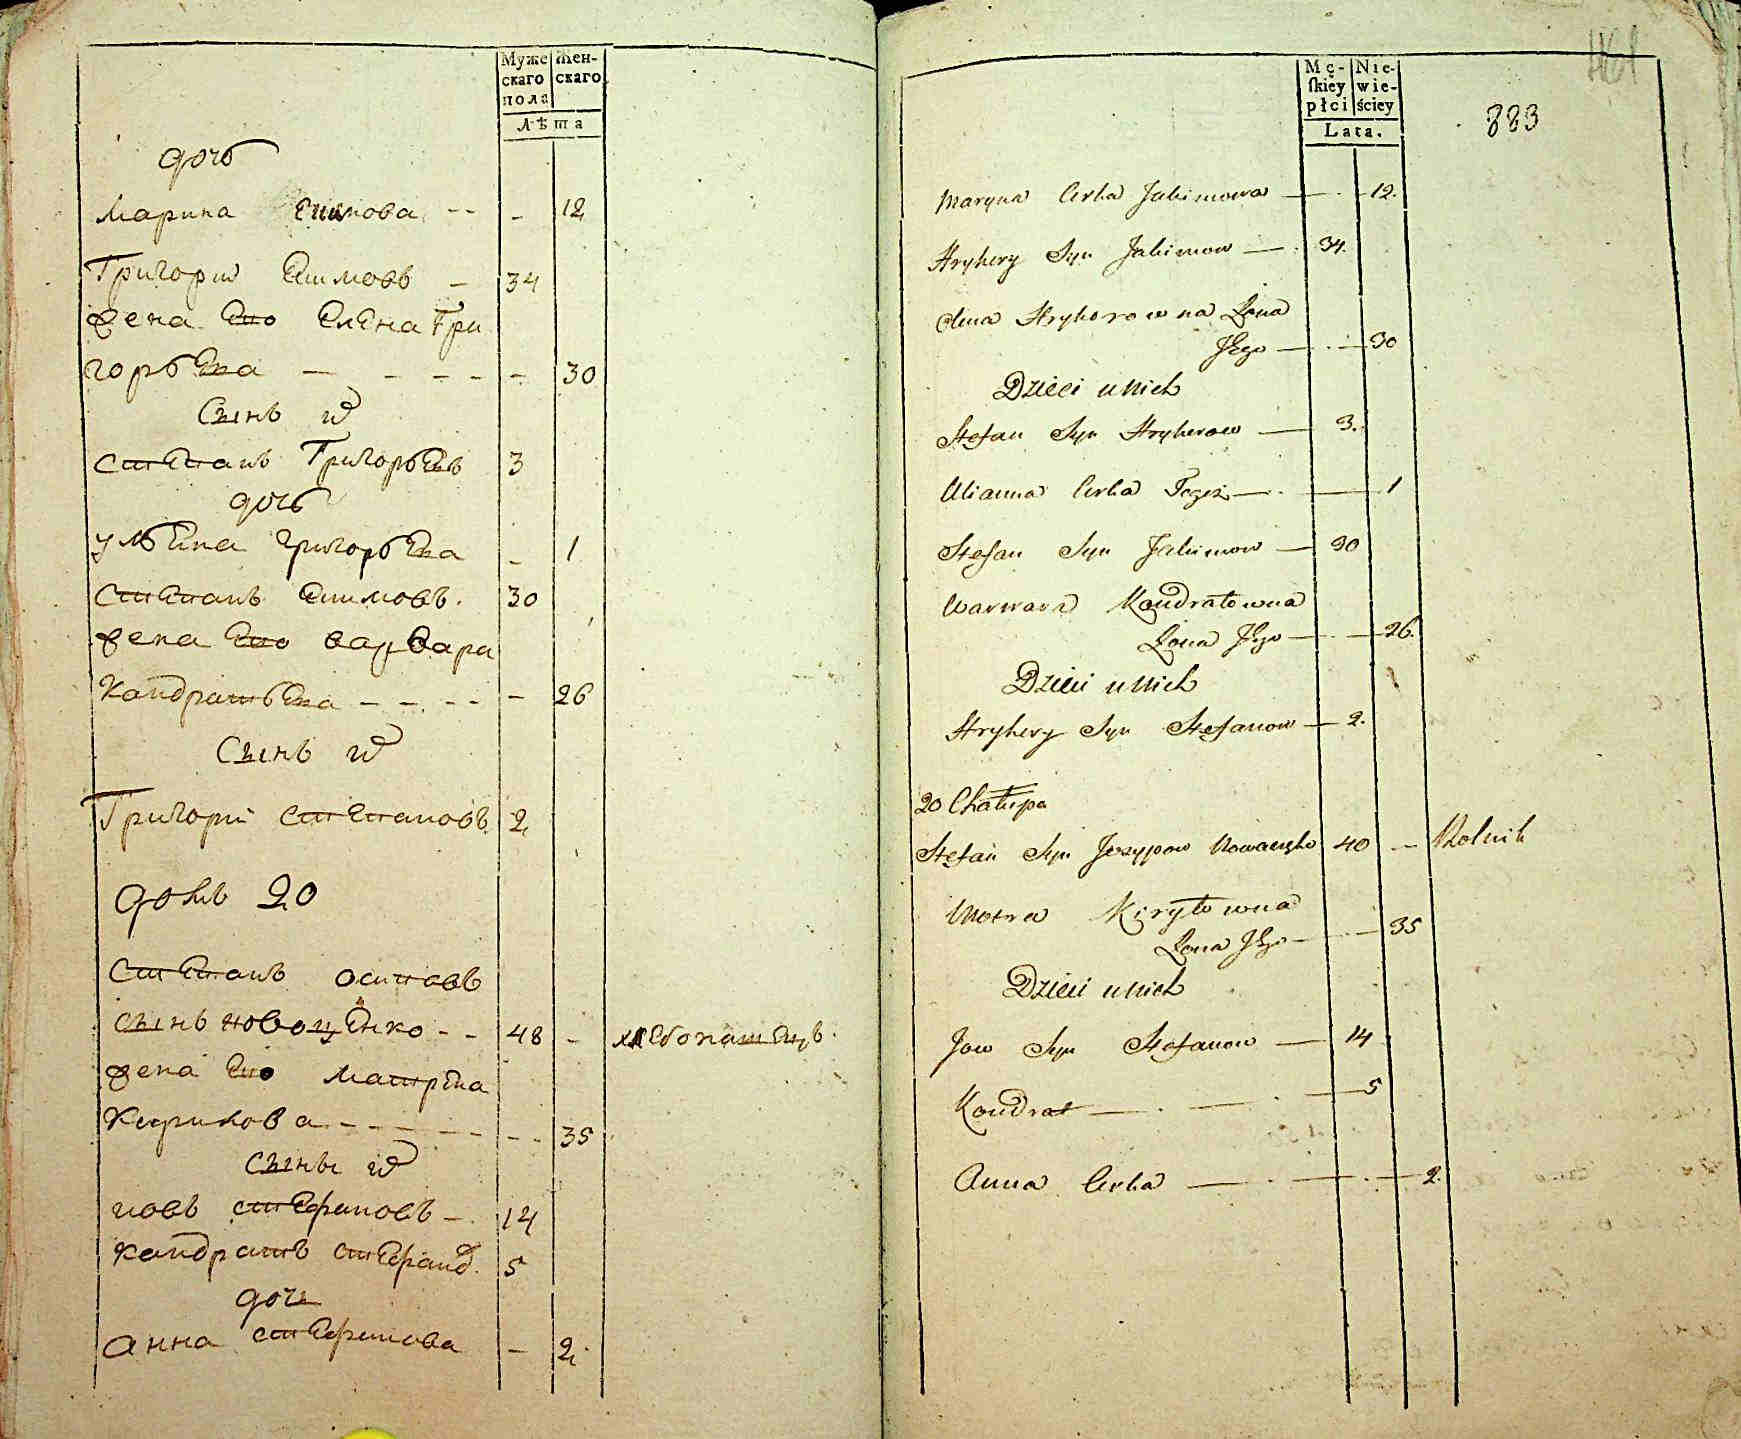 Муже
скаго
пола
Жен-
скаго
Лѣта
дочь
Марина Екимова -- - 12
Григорий Екимовъ - 34
жена Ево Елена Гри
горьева - - - - - - 30
Сынъ их
степанъ Григорьевъ 3
дочь
ульяна григорьева - 1
степанъ Екимовъ. 30
жена Ево варвара
Кандратьева - - - - - 26
Сынъ их
Григорий степановъ 2
домъ 20
степанъ осиповъ
сынъ новоценко - - 48 - хлебопашецъ.
жена Ево матрена
Кирилова - - - - - - - 35
сыны их
иовъ стефановъ - 14
кандратъ стефанов. 5
дочь
анна стефанова - 2
Mę-
skiey
płci
Nie-
wie-
ściey
Lata.
461
883
Maryna Corka Jakimowa — 12.
Hryhery Syn Jakimow — 34.
Hryhorowna Żona
Jego — 30
Dzieci u Nich
Stefan Syn Hryherow — 3.
Ulianna Corka Tegoż — 1
Stefan Syn Jakimow — 30
Warwara Kondratowna
Żona Jego — 26.
Dzieci u Nich
Hryhery Syn Stefanow — 2.
20 Chałupa
Stefan Syn Jozypow 40 — Rolnik
Motra Kiryłowna
Żona Jego — 35
Dzieci u Nich
Jow Syn Stefanow — 14
Kondrat — 5
Anna Corka — 2.